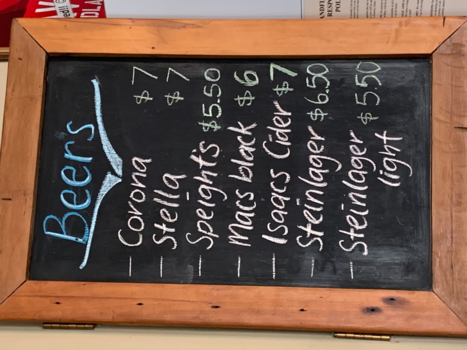 Beers
- Corona $7
- Stella $7
- Speight's $5.50
- Macs black $6
- Isaacs Cider $7
- Steinlager $6.50
- Steinlager $5.50
light